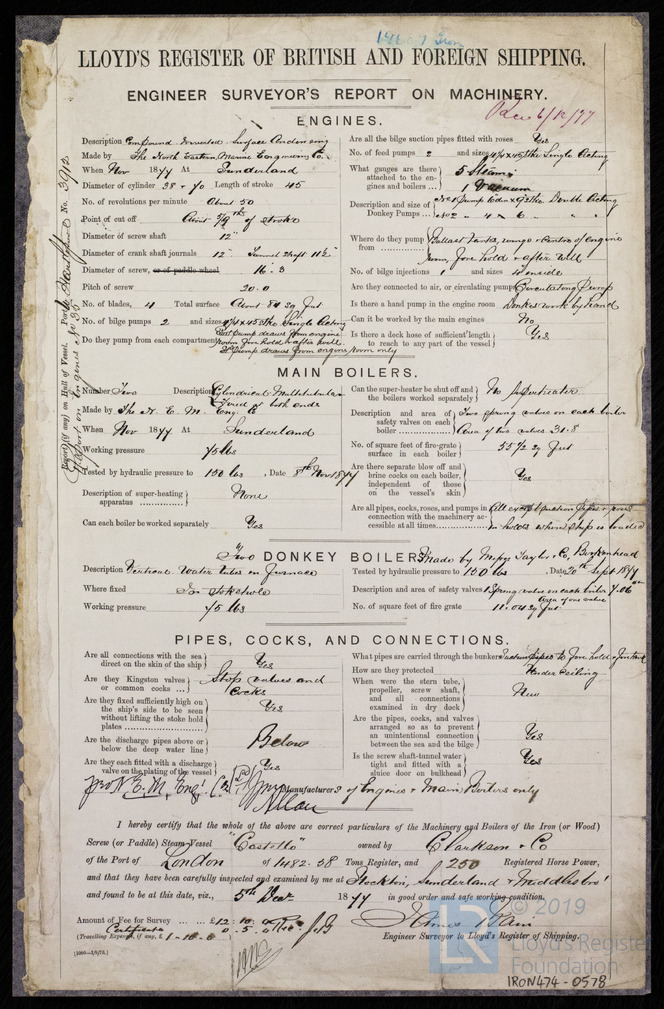 LLOYD'S REGISTER OF BRITISH AND FOREIGN SHIPPING.
ENGINEER SURVEYOR'S REPORT ON MACHINERY.
Rec 6/12/77
ENGINES.
Description Compound Inverted Surface Condensing
Made by The North Eastern Marine Engineering Co.
When Nov 1877 At Sunderland
Diameter of cylinder 38 + 70 Length of stroke 45
No. of revolutions per minute About 50
Point of cut off About of stroke
Diameter of screw shaft 12"
Diameter of crank shaft journals 12" Tunnel Shaft 11½"
Diameter of screw, or of paddle wheel 16.3
Pitch of screw 20.0
No. of blades, 4 Total surface About 84 sq feet
No. of bilge pumps 2 and sizes Single Acting
Do they pump from each compartment pump draws from engine
room fore hold + after well
2nd pump draws from engine room only
Are all the bilge suction pipes fitted with roses Yes
No. of feed pumps 2 and sizes Single Acting
What gauges are there attached to the engines and boilers ... 5 Steam
1 Vacuum
Description and size of Donkey Pumps ... Double Acting
No2 " 4 " 6 " "
Where do they pump from Ballast tanks, wings + centre of engine
room, fore hold + after well
No. of bilge injections 1 and sizes 4 inside
Are they connected to air, or circulating pump Circulating Pump
Is there a hand pump in the engine room Donkey work by hand
Can it be worked by the main engines No
Is there a deck hose of sufficient length to reach to any part of the vessel Yes
MAIN BOILERS.
Number Two Description Cylindrical Multitubular
Fired at both ends
Made by The N. E. M. Eng. Co
When Nov 1877 At Sunderland
Working pressure 75 lbs
Tested by hydraulic pressure to 150 lbs, Date 8th Nov 1877
Description of super-heating apparatus None
Can each boiler be worked separately Yes
Can the super-heater be shut off and the boilers worked separately No superheater
Description and area of safety valves on each boiler Two spring valves on each boiler
Area of two valves 31.8
No. of square feet of fire-grate surface in each boiler 55½ sq feet
Are there separate blow off and brine cocks on each boiler, independent of those on the vessel's skin Yes
Are all pipes, cocks, roses, and pumps in connection with the machinery accessible at all times All except suction pipes + roses
in holds when ship is loaded
Two DONKEY BOILERS Made by Messrs Taylor + Co, Birkenhead
Description Vertical Water tubes in furnace
Where fixed In stokehole
Working pressure 75 lbs
Tested by hydraulic pressure to 150 lbs, Date 20th Sept 1877
Description and area of safety valves 1 Spring valve on each boiler 7.06
Area of one valve
No. of square feet of fire grate 11.04 sq feet
PIPES, COCKS, AND CONNECTIONS.
Are all connections with the sea direct on the skin of the ship Yes
Are they Kingston valves or common cocks Stop valves and
Cocks
Are they fixed sufficiently high on the ship's side to be seen without lifting the stoke hold plates Yes
Are the discharge pipes above or below the deep water line Below
Are they each fitted with a discharge valve on the plating of the vessel Yes
What pipes are carried through the bunkers Suction pipes to fore hold +
How are they protected Under Ceiling
When were the stern tube, propeller, screw shaft, and all connections examined in dry dock New
Are the pipes, cocks, and valves arranged so as to prevent an unintentional connection between the sea and the bilge Yes
Is the screw shaft-tunnel water tight and fitted with a sluice door on bulkhead Yes
for N. E. M. Eng. Co. Manufacturers of Engines + Main Boilers only
Allan
I hereby certify that the whole of the above are correct particulars of the Machinery and Boilers of the Iron (or Wood)
Screw (or Paddle) Steam-Vessel "Castello" owned by Clarkson + Co
of the Port of London of 1482.38 Tons Register, and 250 Registered Horse Power,
and that they have been carefully inspected and examined by me at Stockton, Sunderland + Middlesbro'
and found to be at this date, viz., 5th Dec 1877 in good order and safe working condition.
Amount of Fee for Survey ... £12.10.0
Certificate 0.5.0
(Travelling Expenses, if any, £1-10-0
Engineer Surveyor to Lloyd's Register of Shipping.
© 2019
Lloyd's Register
Foundation
IRON474-0578